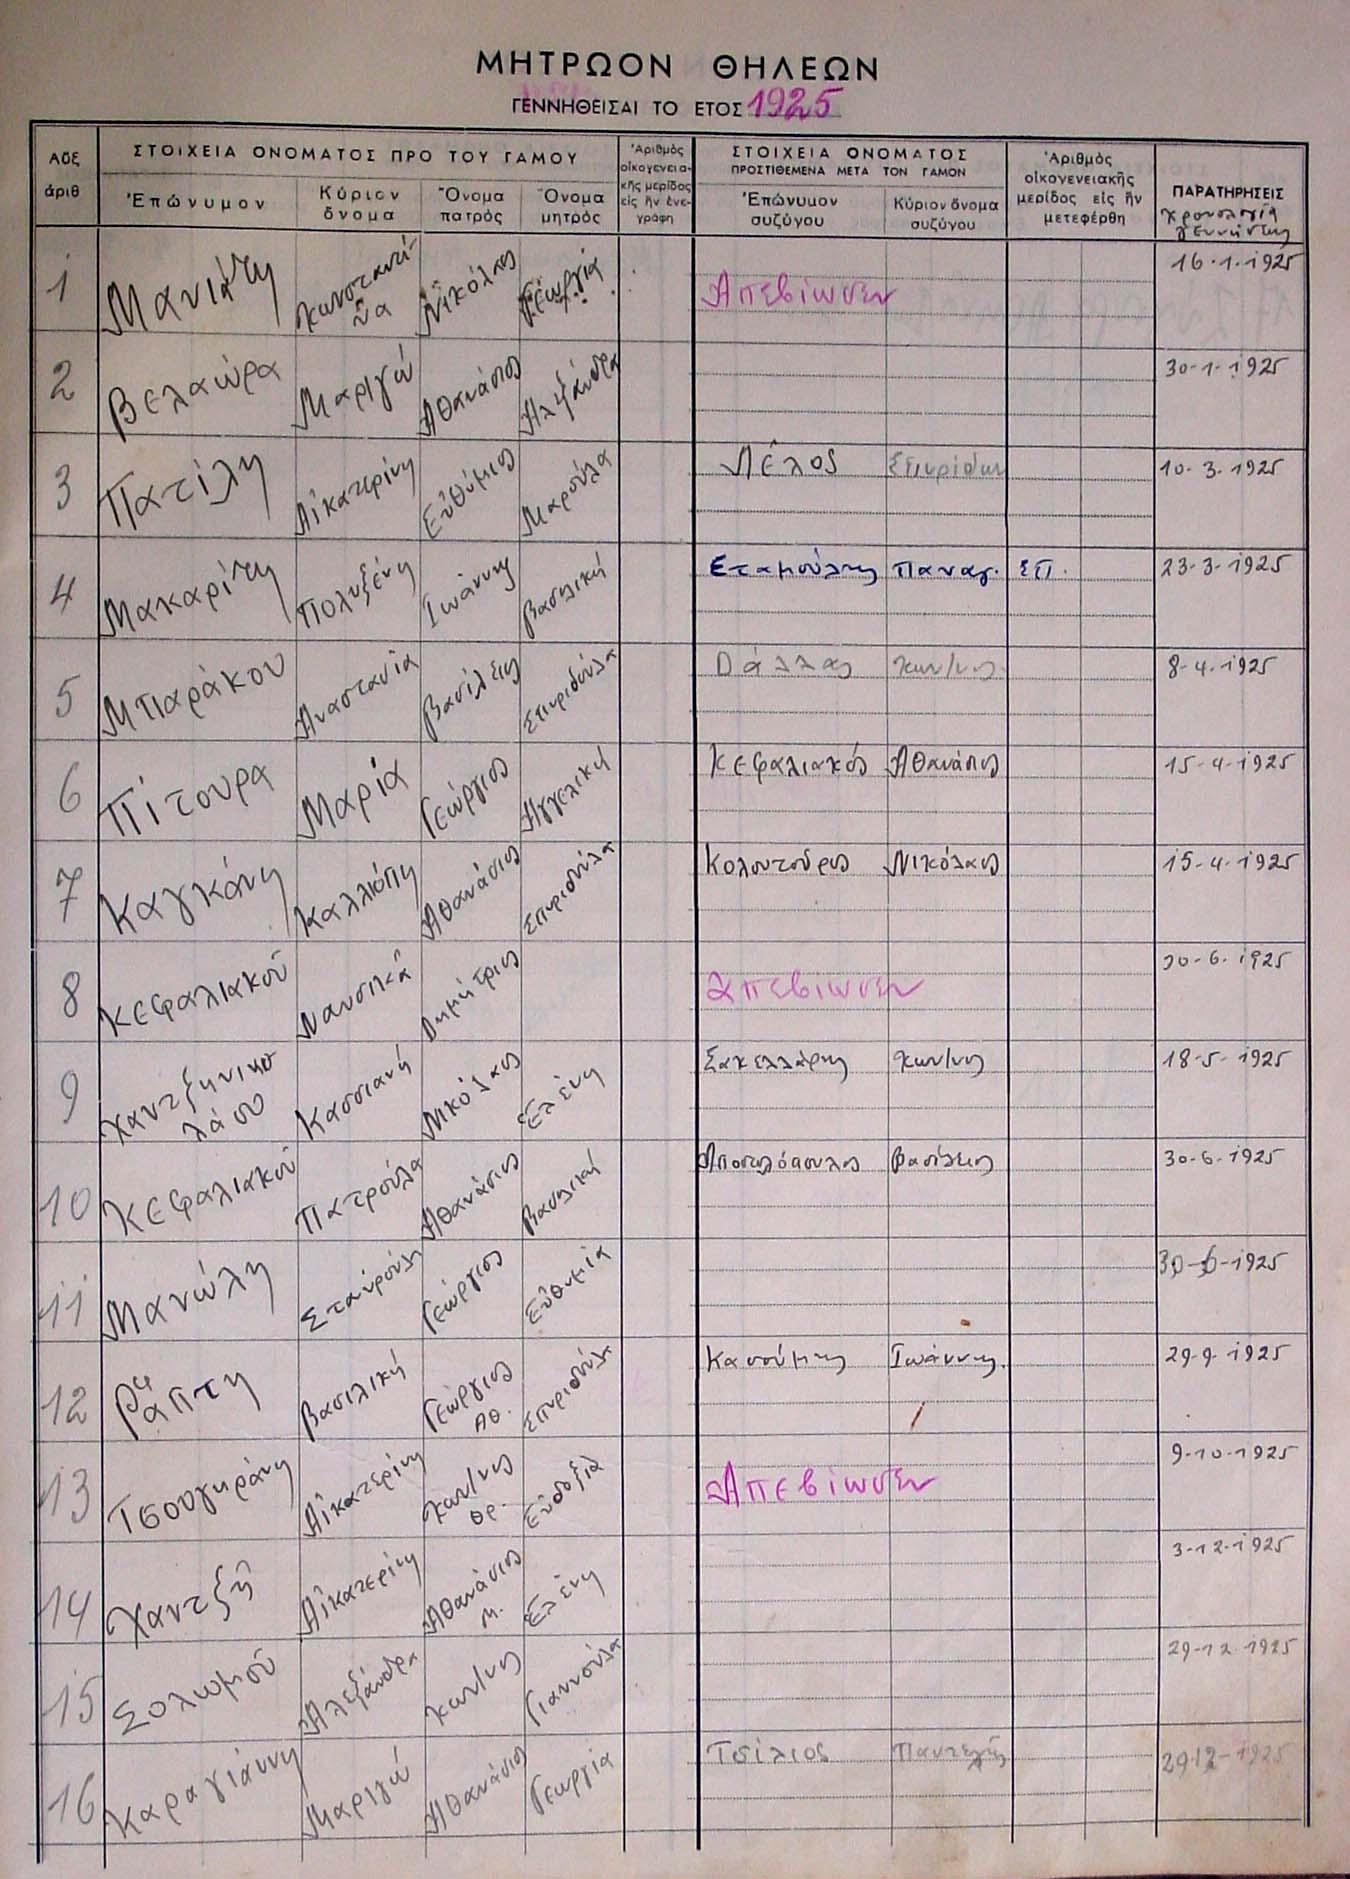 ΜΗΤΡΩΟΝ ΘΗΛΕΩΝ
ΓΕΝΝΗΘΕΙΣΑΙ ΤΟ ΕΤΟΣ 1925
Αὔξ ἀριθ
ΣΤΟΙΧΕΙΑ ΟΝΟΜΑΤΟΣ ΠΡΟ ΤΟΥ ΓΑΜΟΥ
Ἐπώνυμον
Κύριον ὄνομα
Ὄνομα πατρός
Ὄνομα μητρός
Ἀριθμὸς οἰκογενειακῆς μερίδος εἰς ἣν ἐνεγράφη
ΣΤΟΙΧΕΙΑ ΟΝΟΜΑΤΟΣ
ΠΡΟΣΤΙΘΕΜΕΝΑ ΜΕΤΑ ΤΟΝ ΓΑΜΟΝ
Ἐπώνυμον συζύγου
Κύριον ὄνομα συζύγου
Ἀριθμὸς οἰκογενειακῆς μερίδος εἰς ἣν μετεφέρθη
ΠΑΡΑΤΗΡΗΣΕΙΣ
χρονολογία γεννήσεως
1 Μανιάτη Κωνσταντίνα Νικόλαος Γεωργία Ἀπεβίωσεν 16-1-1925
2 Βελαώρα Μαριγώ Ἀθανάσιος Ἀλεξάνδρα 30-1-1925
3 Πατίλη Αἰκατερίνη Εὐθύμιος Μαρούλα Λέλος Σπυρίδων 10-3-1925
4 Μακαρίτη Πολυξένη Ἰωάννης Βασιλική Σταμούλης Παναγ. ΣΠ. 23-3-1925
5 Μπαράκου Ἀναστασία Βασίλειος Σπυριδούλα Δάλλας Κων/νος 8-4-1925
6 Πίτουρα Μαρία Γεώργιος Ἀγγελική Κεφαλιακός Ἀθανάσιος 15-4-1925
7 Καγκάνη Καλλιόπη Ἀθανάσιος Σπυριδούλα Κολουτούρος Νικόλαος 15-4-1925
8 Κεφαλιακοῦ Ναυσικᾶ Δημήτριος Ἀπεβίωσεν 6-1925
9 Χαντζηνικολάου Κασσιανή Νικόλαος Ἑλένη Σακελλάρης Κων/νος 18-5-1925
10 Κεφαλιακοῦ Πατρούλα Ἀθανάσιος Βασιλική Ἀποστολόπουλος Βασίλειος 30-6-1925
11 Μανώλη Σταυρούλα Γεώργιος Εὐθυμία 30-6-1925
12 Ράπτη Βασιλική Γεώργιος Ἀθ. Σπυριδούλα Κατσίμης Ἰωάννης. 29-9-1925
13 Τσουγκράνη Αἰκατερίνη Κων/νος Θρ. Εὐδοξία Ἀπεβίωσεν 9-10-1925
14 Χαντζῆ Αἰκατερίνη Ἀθανάσιος Μ. Ἑλένη 3-12-1925
15 Σολωμοῦ Ἀλεξάνδρα Κων/νος Γιαννούλα 29-12-1925
16 Καραγιάννη Μαριγώ Ἀθανάσιος Γεωργία Τσίλιος Παντελῆς 29-12-1925